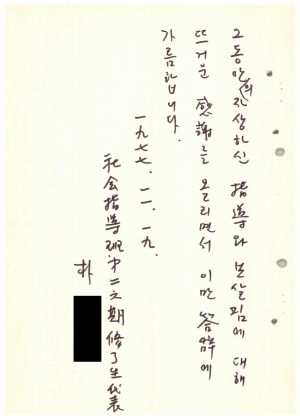 그동안의 자상하신 指導와 보살핌에 대해
뜨거운 感謝를 올리면서 이만 答辭에
가름합니다.
一九七七. 一一. 一九.
社会指導班 第二六期 修了生代表
朴